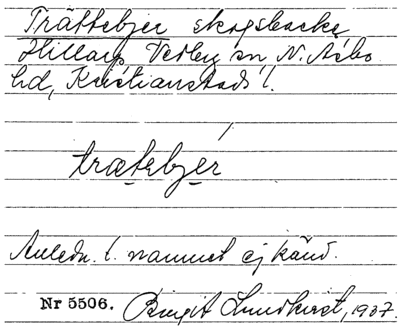 Trättebjer skogsbacke
Hillarp, Vedby sn N. Åsbo
hd, Kristianstads l.
trætebjer
Anledn. t. namnet ej känd.
Nr 5506. Birgit Lundkvist, 1937.